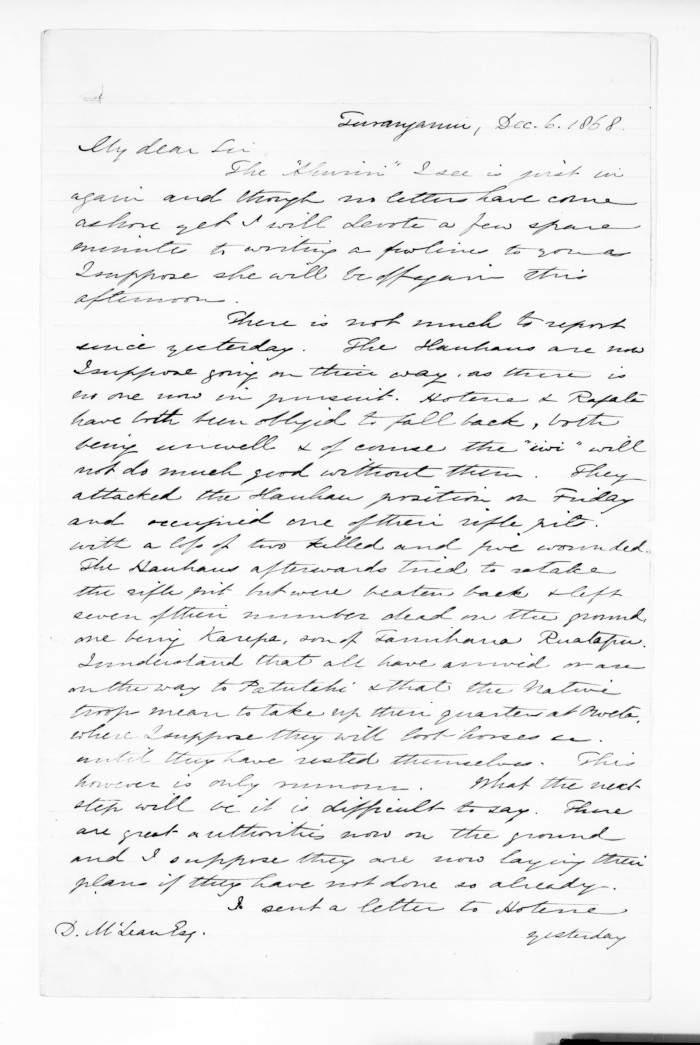 Turanganui, Dec. 6. 1868.
My dear Sir
The "Ahuriri" I see is just in
again and though no letters have come
ashore yet I will devote a few spare
minutes to writing a few lines to you as
I suppose she will be off again this
afternoon.
There is not much to report
since yesterday. The Hauhaus are now
I suppose going on their way, as there is
no one now in pursuit. Hotene & Rapata
have both been obliged to fall back, both
being unwell & of course the "iwi" will
not do much good without them. They
attacked the Hauhau position on Friday
and occupied one of their rifle pits.
with a loss of two killed and five wounded.
The Hauhaus afterwards tried to retake
the rifle pit but were beaten back & left
seven of their number dead on the ground
one being Karepa, son of Tamihana Ruatapu.
I understand that all have arrived or are
on the way to Patutahi & that the Native
troops mean to take up their quarters at Oweta,
where I suppose they will loot horses &c.
until they have rested themselves. This
however is only rumour. What the next
step will be it is difficult to say. There
are great authorities now on the ground
and I suppose they are now laying their
plans if they have not done so already.
I sent a letter to Hotene
D. McLean Esq. yesterday